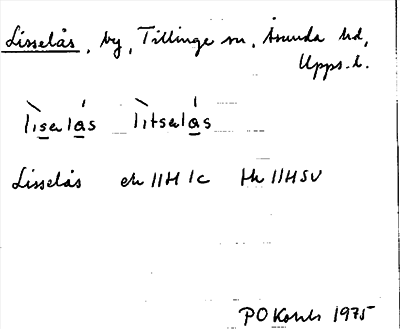 Lisselås, by, Tillinge sn, Åsunda hd,
Upps. l.
lìselá̱s lìtselá̱s
Lisselås ek 11H 1c tk 11HSV
PO 1975